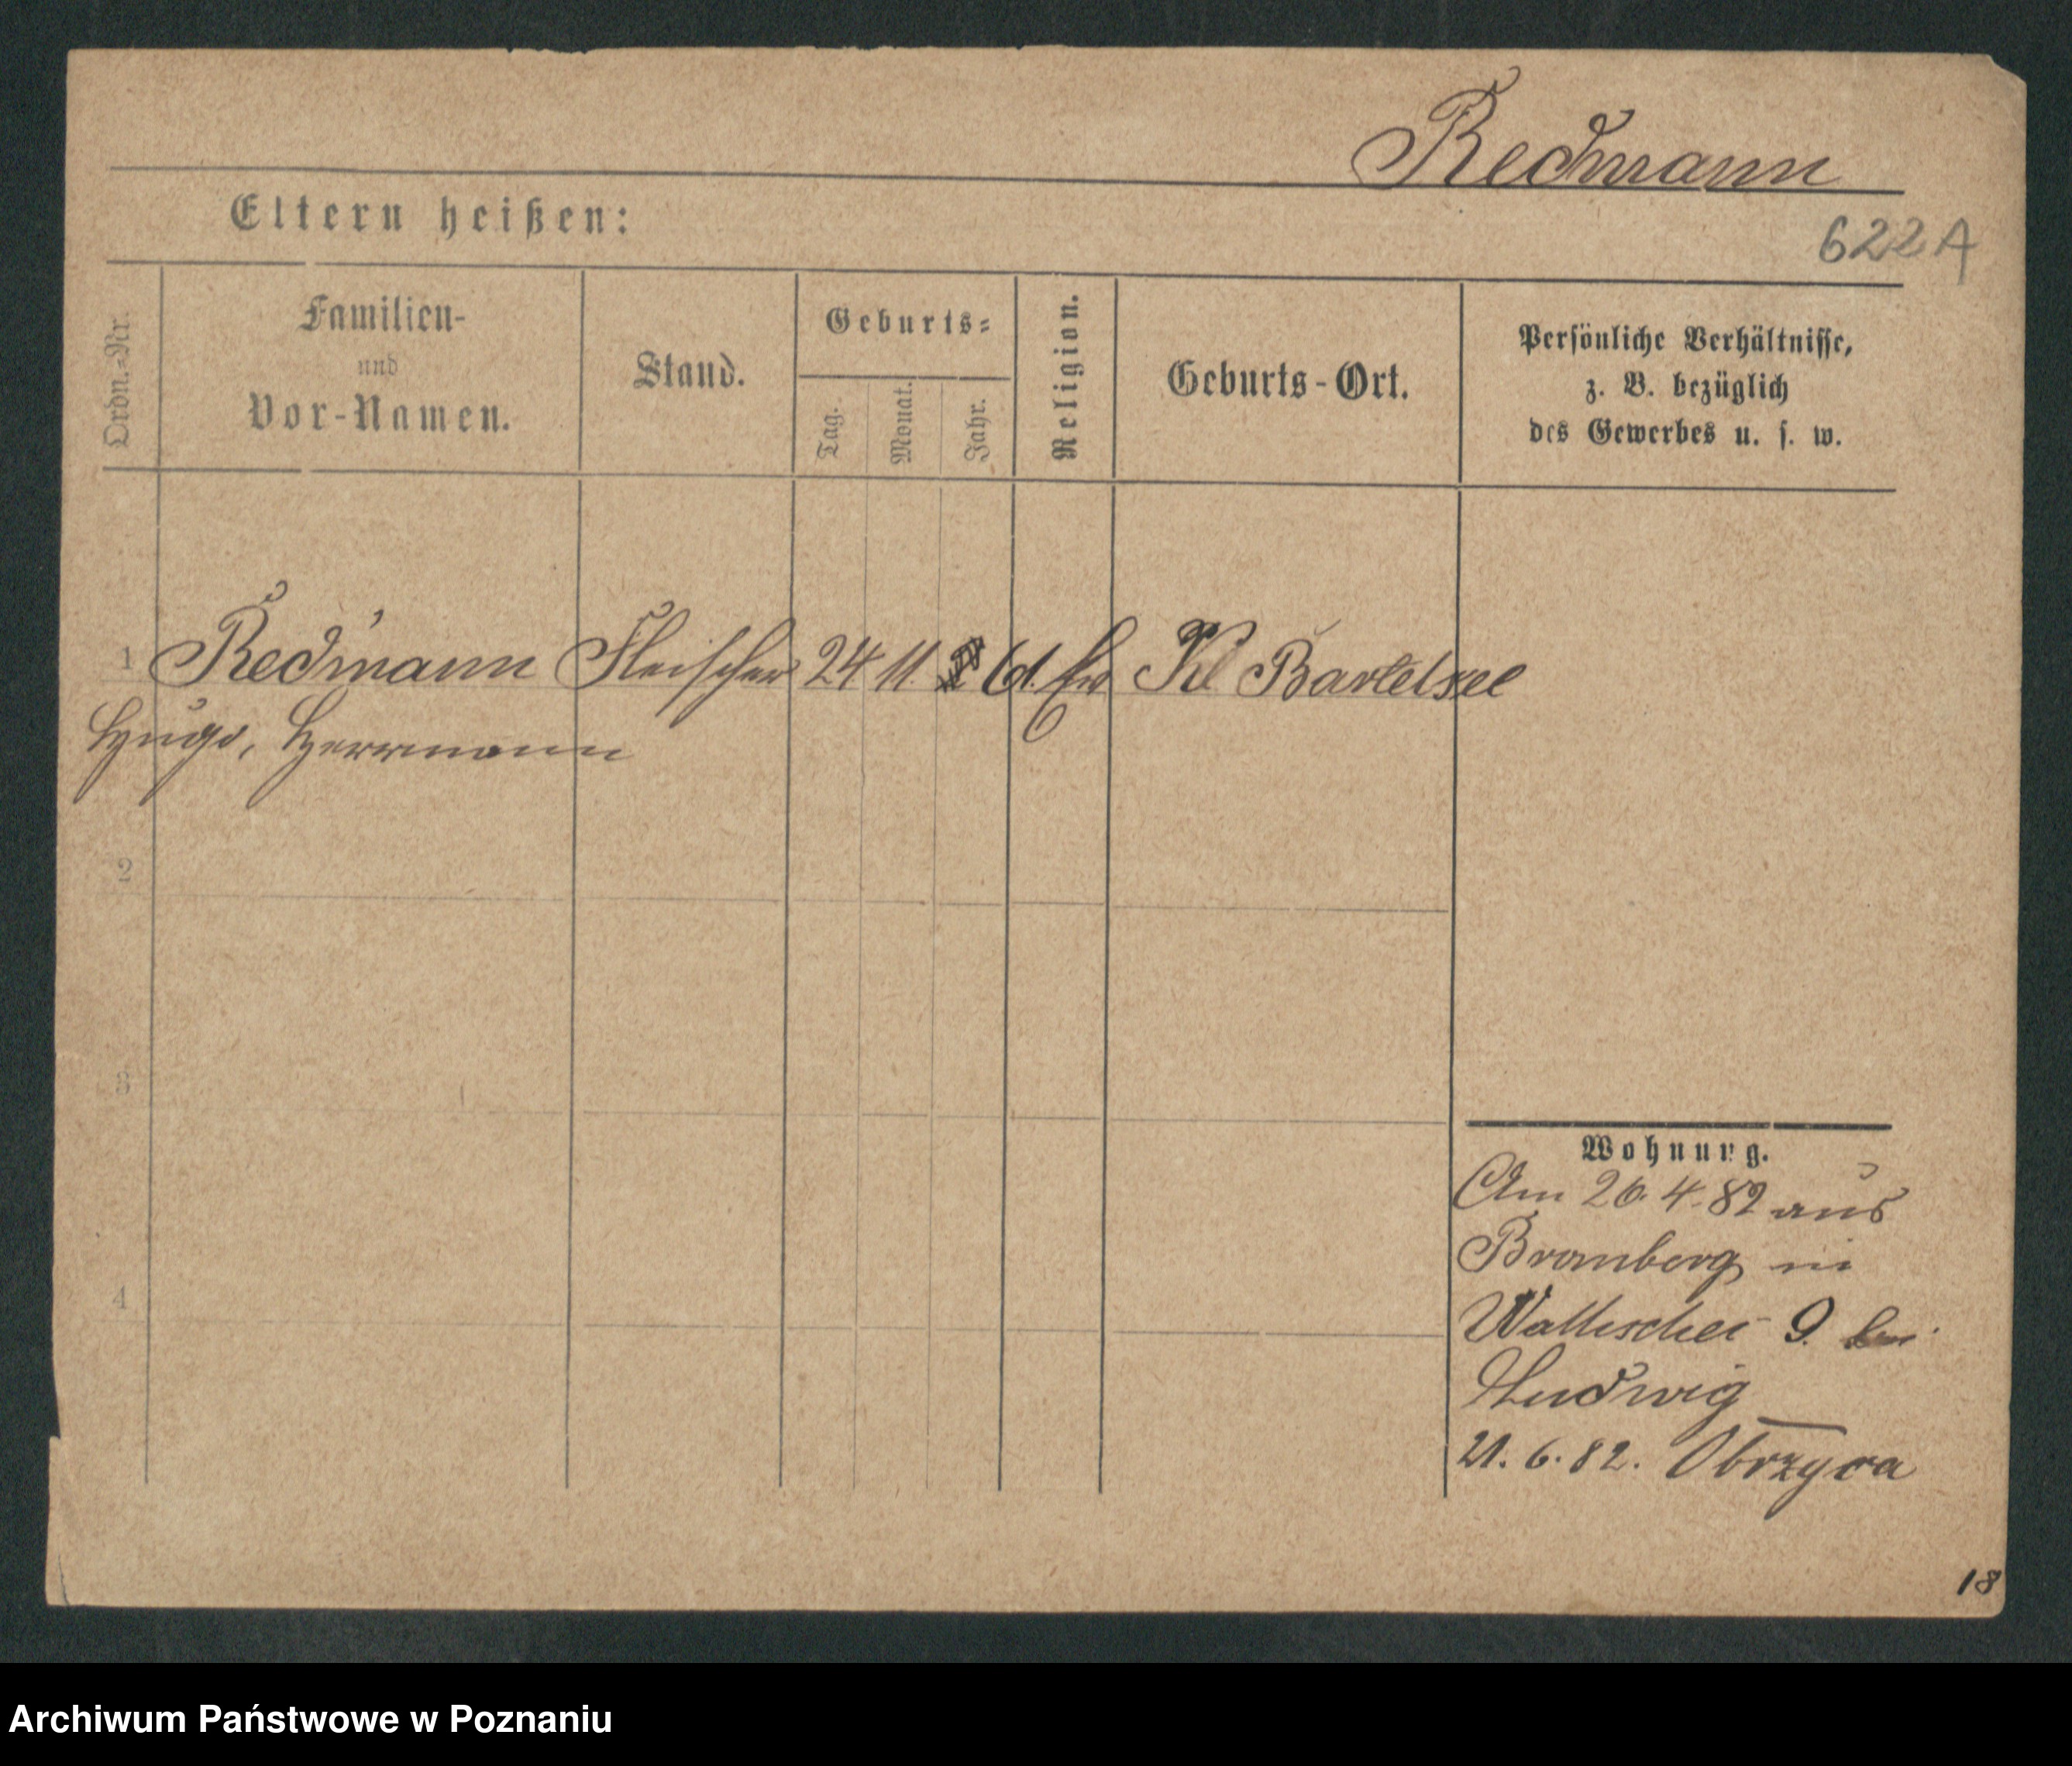 Redmann
Eltern heißen:
622A
Ordn.-Nr.
Familien-
und
Vor-Namen.
Stand.
Geburts-
Tag.
Monat.
Jahr.
Religion.
Geburts-Ort.
Persönliche Verhältnisse,
z. B. bezüglich
des Gewerbes u. s. w.
1 Redmann Fleischer 24 11. 61. Ev Kl Bartelsee
Hugo, Herrmann
2
3
4
Wohnung.
Am 26. 4. 82 aus
Bromberg in
Wallischei 9. bei
Ludwig
21. 6. 82. Obrzyca
18
Archiwum Państwowe w Poznaniu